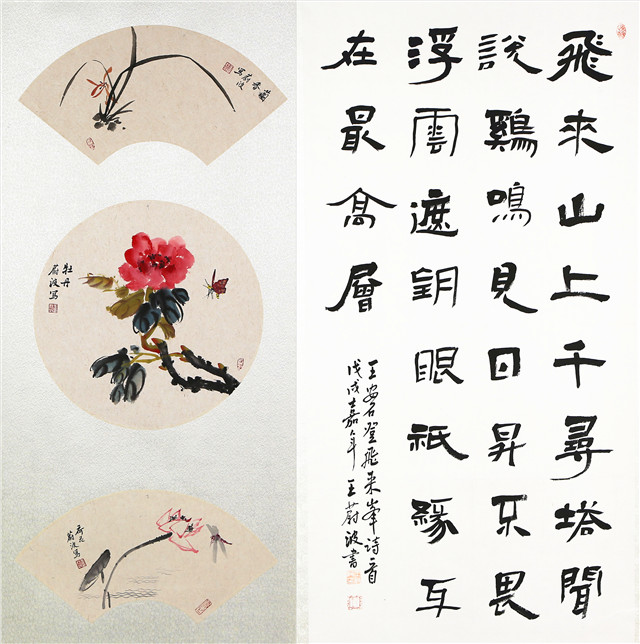 飛来山上千尋塔聞
說鷄鳴見日昇不畏
浮雲遮望眼祇緣身
在最高層
王安石登飛来峯诗一首
戊戌嘉年王蔚波書
蘭香
蔚波写
牡丹
蔚波写
荷花
蔚波写